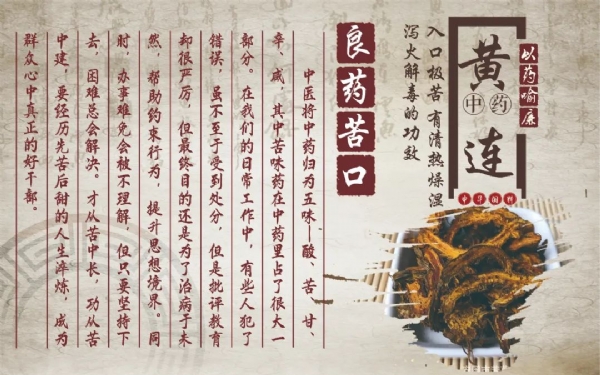 以药喻廉
黄连
中药
中华国粹
入口极苦 有清热燥湿
泻火解毒的功效
良药苦口
中医将中药归为五味—酸、苦、甘、
辛、咸，其中苦味药在中药里占了很大一
部分。在我们的日常工作中，有些人犯了
错误，虽不至于受到处分，但是批评教育
却很严厉，但最终目的还是为了治病于未
然，帮助约束行为，提升思想境界。同
时，办事难免会被不理解，但只要坚持下
去，困难总会解决。才从苦中长，功从苦
中建，要经历先苦后甜的人生淬炼，成为
群众心中真正的好干部。